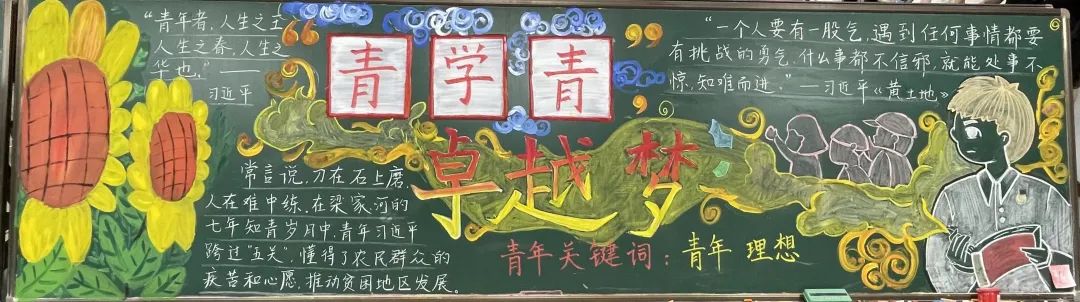 “青年者，人生之王
人生之春，人生之
华也。”——
习近平
青学青
卓越梦
“一个人要有一股气，遇到任何事情都要
有挑战的勇气，什么事都不信邪，就能处事不
惊，知难而进。”——习近平《黄土地》
常言说，刀在石上磨，
人在难中练，在梁家河的
七年知青岁月中，青年习近平
跨过“五关”，懂得了农民群众的
疾苦和心愿，推动贫困地区发展。
青年关键词：青年 理想